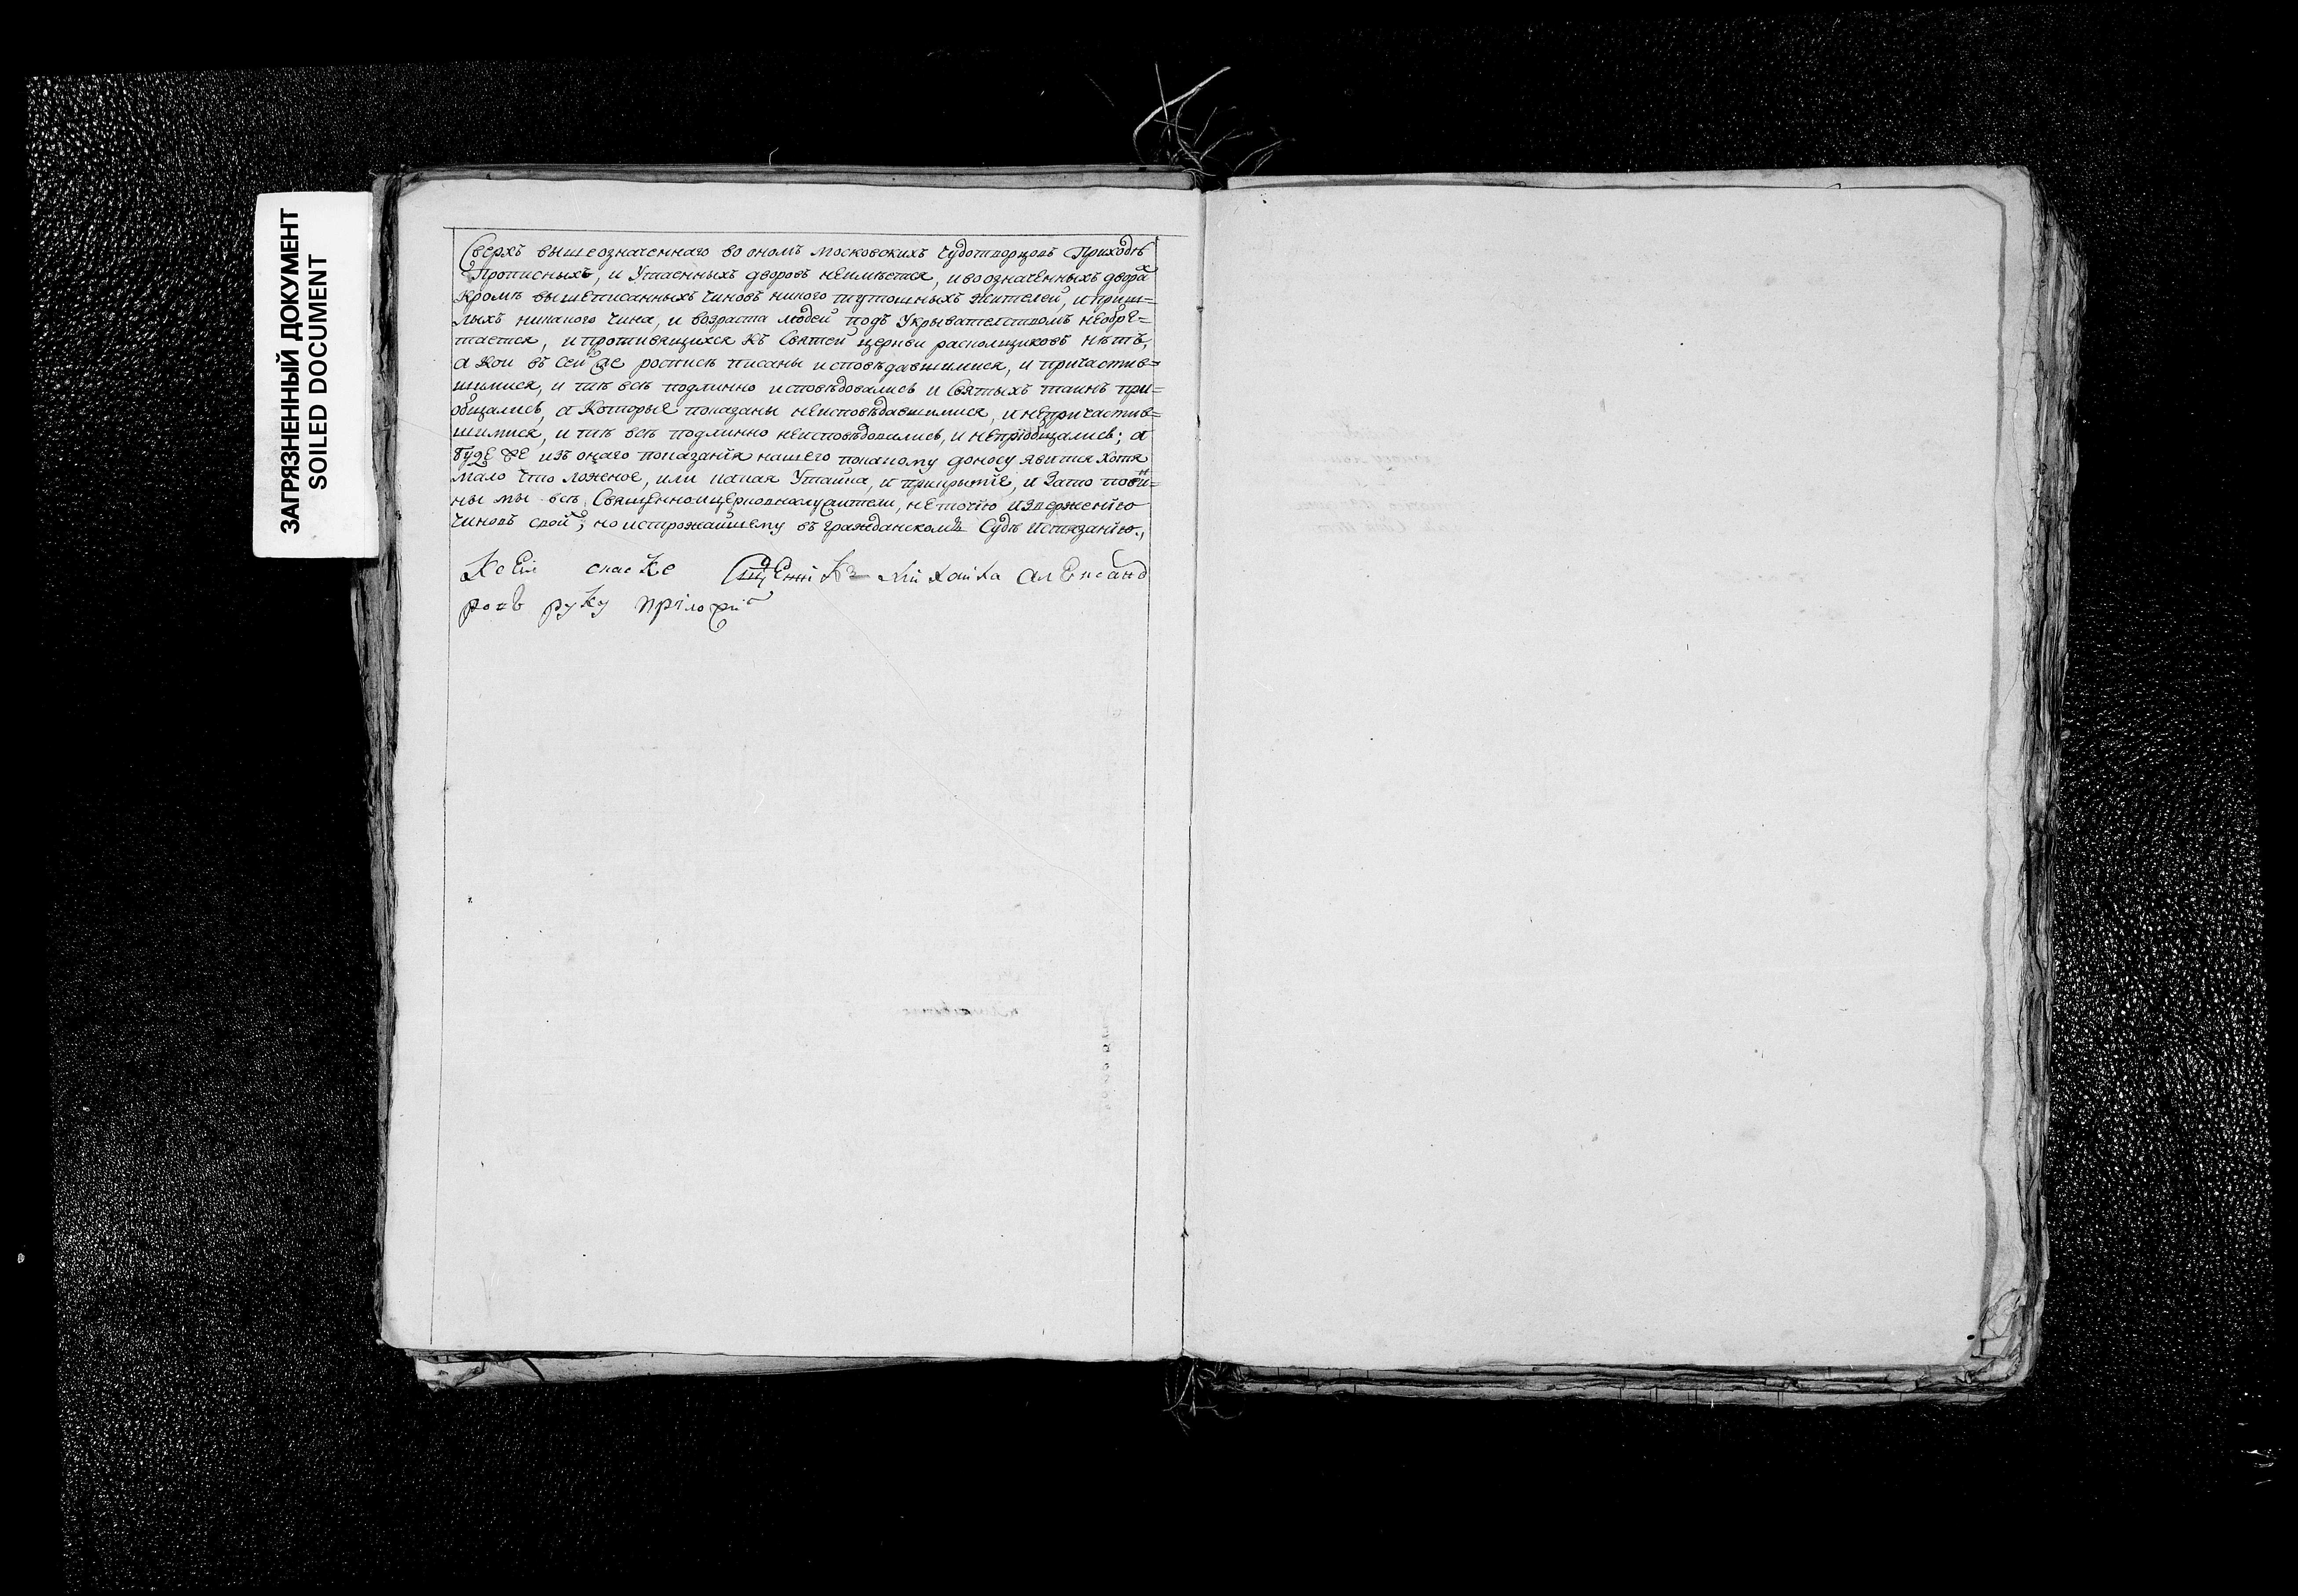 ЗАГРЯЗНЕННЫЙ ДОКУМЕНТ
SOILED DOCUMENT
Сверхъ вышеозначеннаго во ономъ московскихъ чудотворцовъ Приходѣ
Прописныхъ, и Утаенныхъ дворовъ неимѣется, и во означенныхъ двора
кромѣ вышеписанныхъ чиновъ никого тутошныхъ жителей, и приш=
лыхъ никакого чина, и возраста людей подъ Укрывателствомъ необре=
тается, и противящихся Къ Святей церкви расколщиковъ нѣтъ,
а Кои въ сей же росписѣ писаны исповѣдавшимися, и причастив=
шимися, и тѣ всѣ подлинно исповѣдовались и Святыхъ таинъ при=
общались, а Которые показаны неисповѣдавшимися, и непричастив=
шимися, и тѣ всѣ подлинно неисповѣдовались, и непріобщались; а
буде же изъ онаго показанія нашего покакому доносу явится хотя
мало что ложное, или какая Утайка, и прикрытіе, и Зато повин=
ны мы всѣ Священноицерковнослужители, неточію изверженію
чиновъ свой, но истрожайшему въ гражданскомъ Судѣ истязанію.,
Ксей скаске Сщенникъ михайла александ
ровъ руку приложил